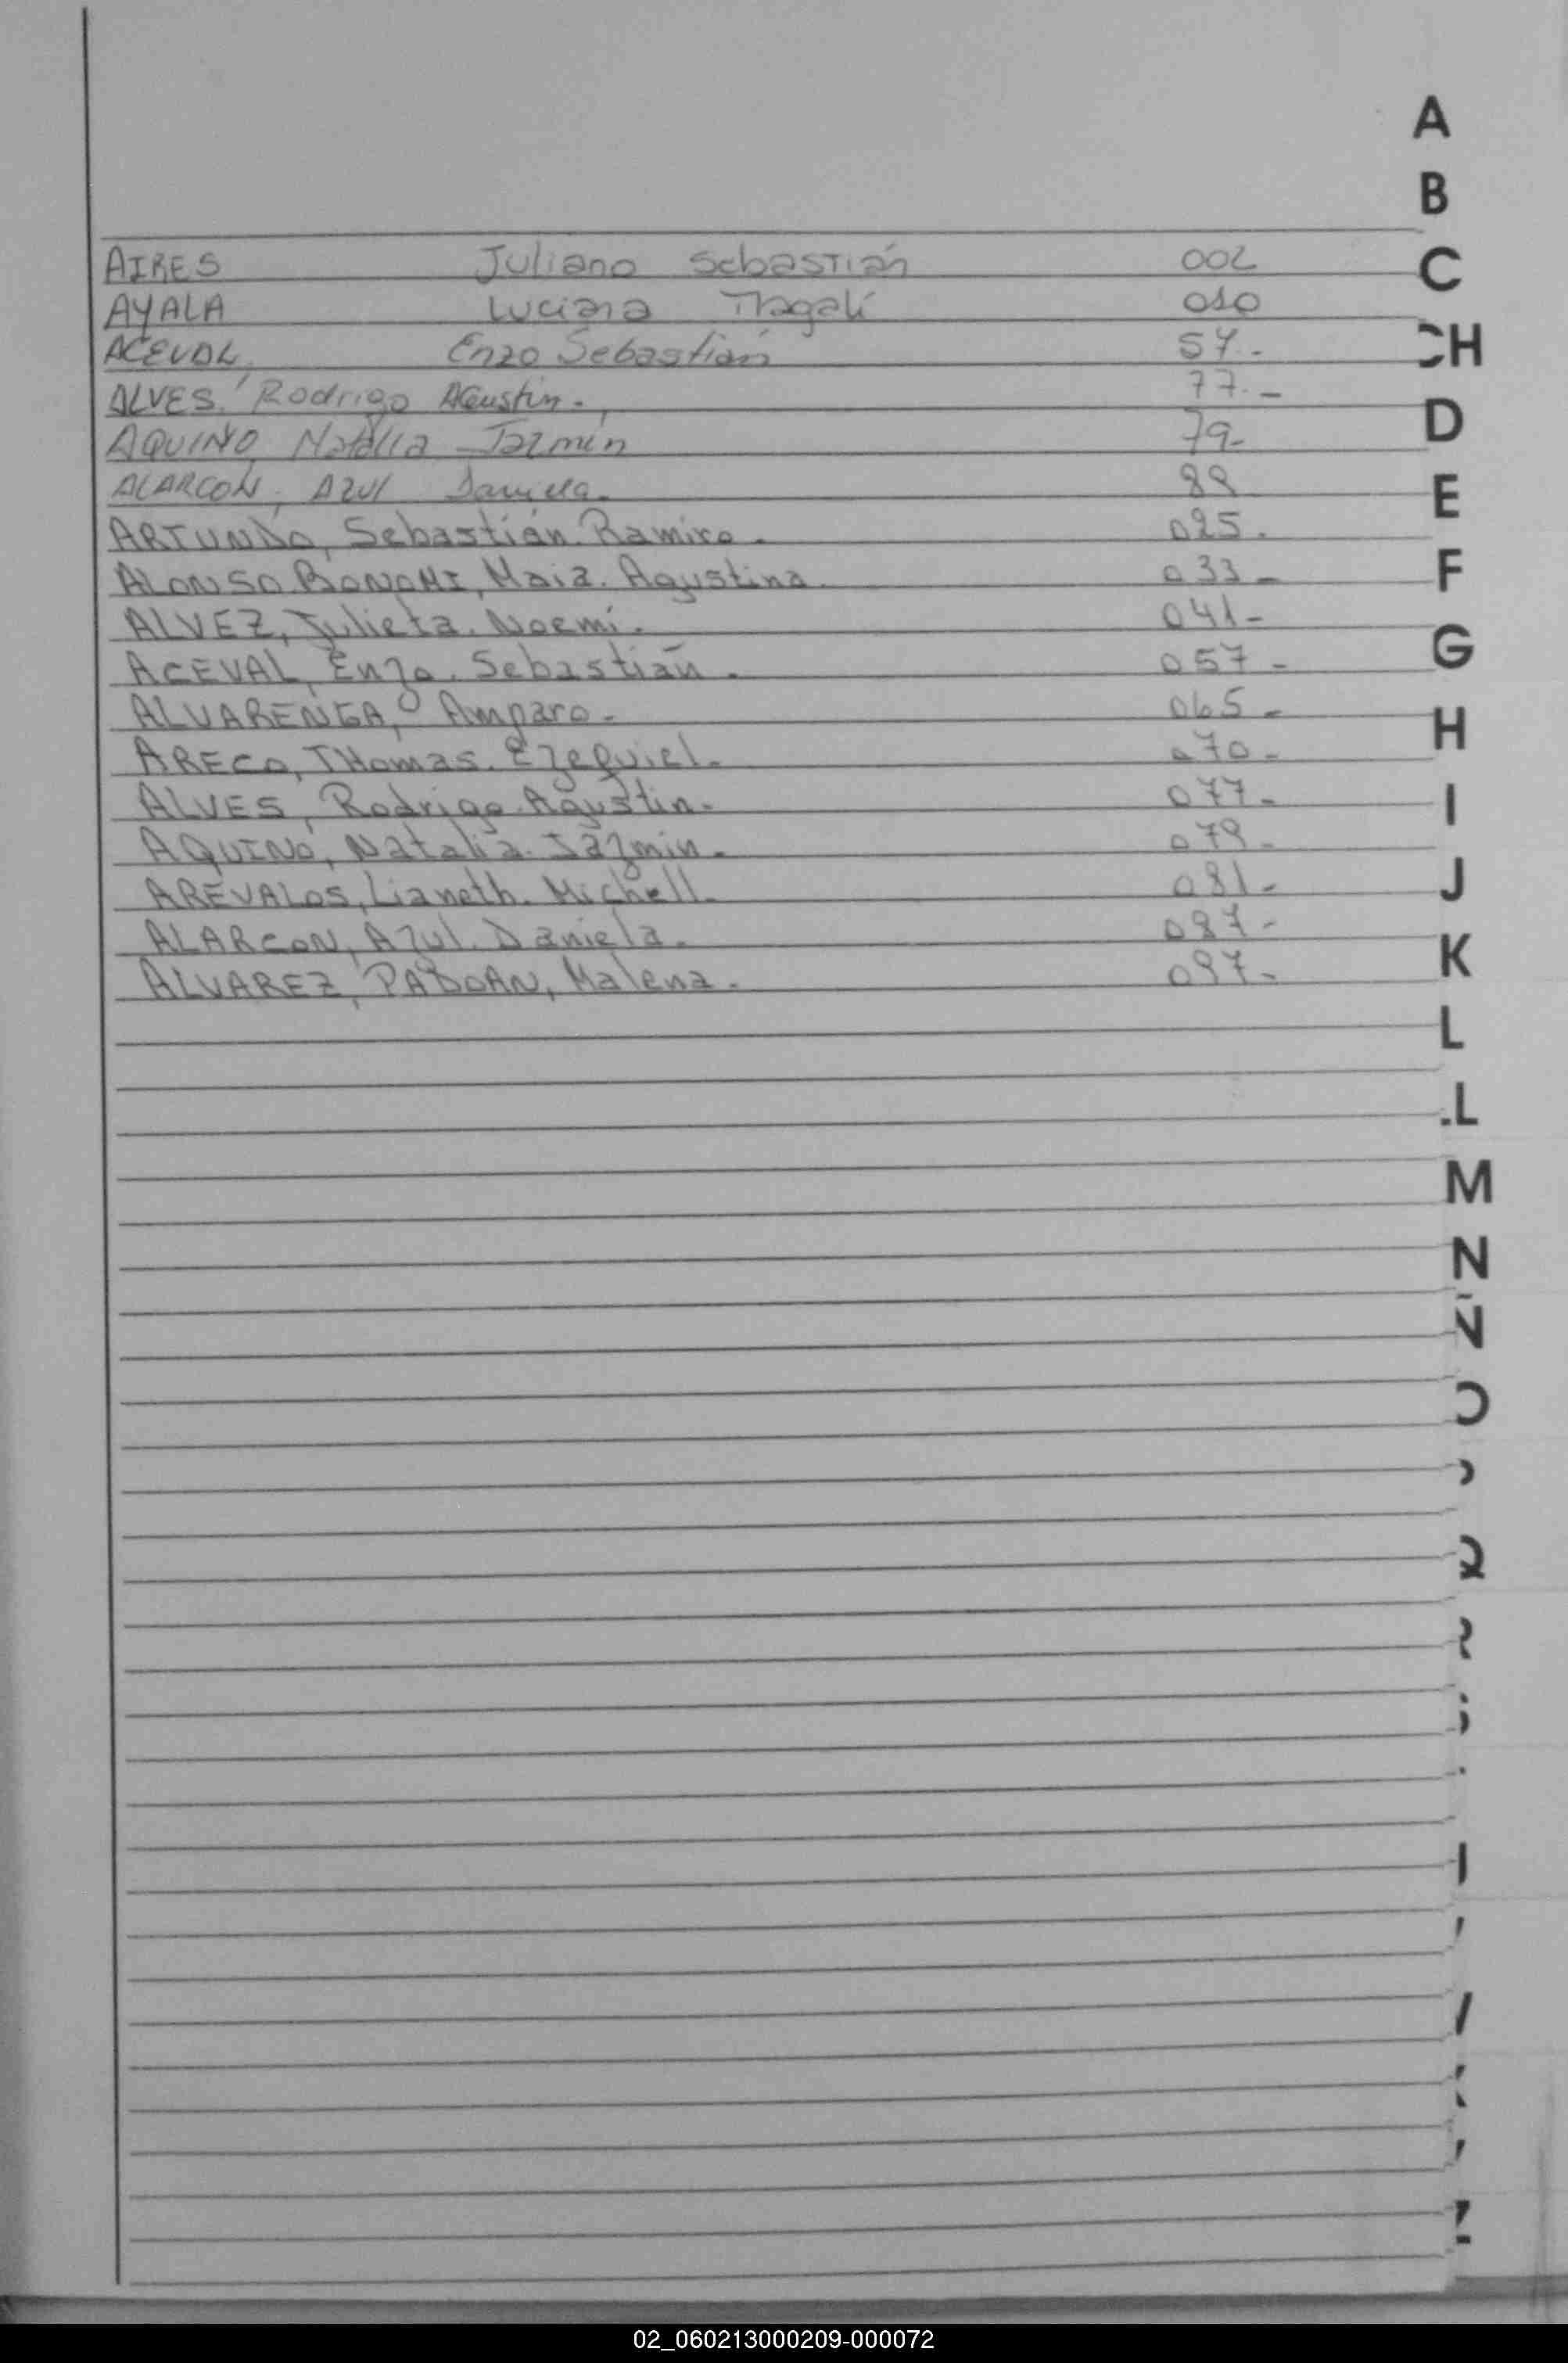 A
B
AIRES Juliano Sebastián 002
C
AYALA Luciana Magalí 010
ACEVAL, Enzo Sebastián 57.-
CH
ALVES, Rodrigo Agustin.- 77.-
D
AQUINO, Natalia Jazmín 79-
ALARCON, AZUL Daniela.
E
ARTUNDO, Sebastián. Ramiro. 025.
ALONSO BONOMI, Maia. Agustina 033-
F
ALVEZ, Julieta. Noemí. 041-
ACEVAL, Enzo. Sebastián. 057-
G
ALVARENGA, Amparo.- 065-
ARECO, THomas. Ezequiel. 070-
H
ALVES, Rodrigo. Agustin. 077-
I
AQUINO, Natalia. Jazmin. 079-
AREVALOS, Lianeth. Michell. 081-
J
ALARCON, Azul. Daniela. 087-
ALVAREZ, PABOAN, Malena. 097-
K
L
LL
M
N
Ñ
O
Q
Z
02_060213000209-000072